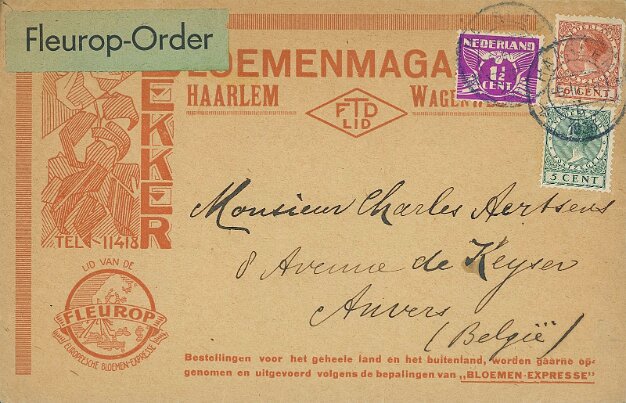 Fleurop-Order
BLOEMENMAGA
HAARLEM
FTD
LID
EKKER
TEL-11418
NEDERLAND
1½
CENT
CENT
5 CENT
Monsieur Charles Aertsens
8 Avenue de Keyser
Anvers
(België)
LID VAN DE
FLEUROP
EUROPEESCHE BLOEMEN-EXPRESSE
Bestellingen voor het geheele land en het buitenland, worden gaarne op-
genomen en uitgevoerd volgens de bepalingen van „BLOEMEN-EXPRESSE”